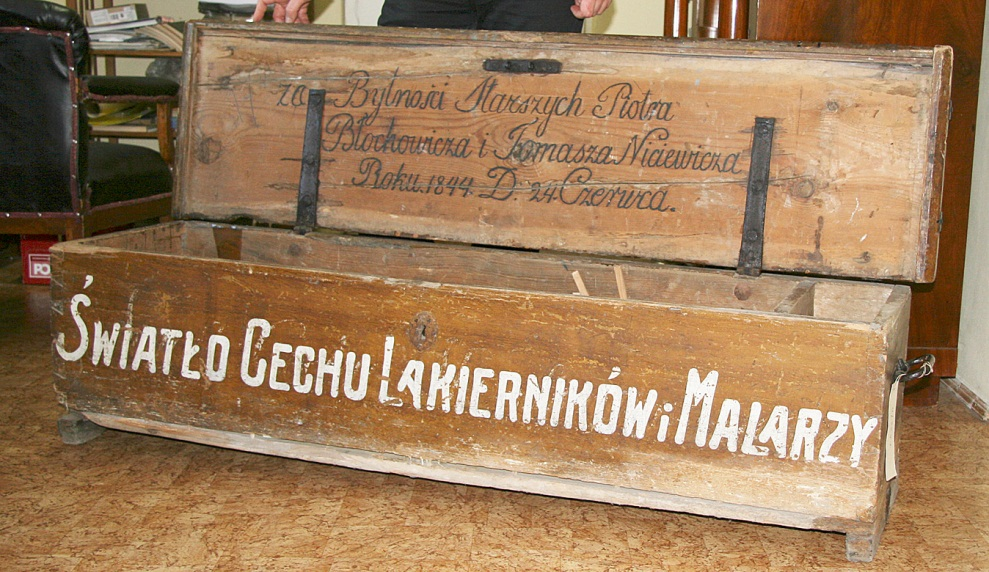 za Bytności Starszych Piotra
Błochowicza i Tomasza Niciewicza
Roku. 1844. D: 24 Czerwca.
ŚWIATŁO CECHU LAKIERNIKÓW i MALARZY
PO